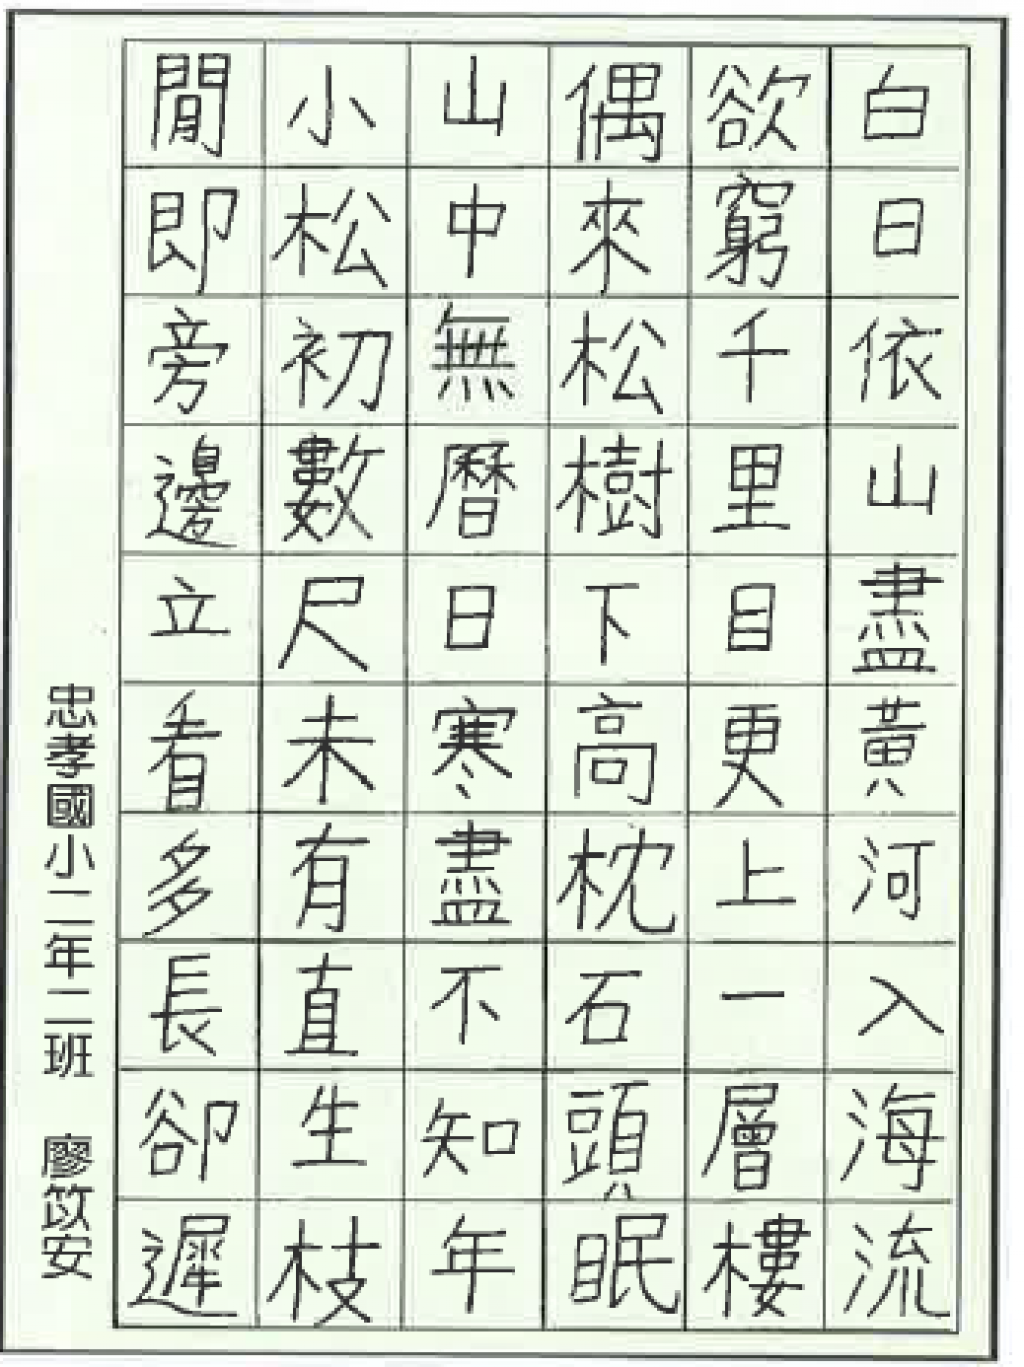 白日依山盡黃河入海流
欲窮千里目更上一層樓
偶來松樹下高枕石頭眠
山中無曆日寒盡不知年
小松初數尺未有直生枝
閒即旁邊立看多長卻遲
忠孝國小二年二班 廖笖安